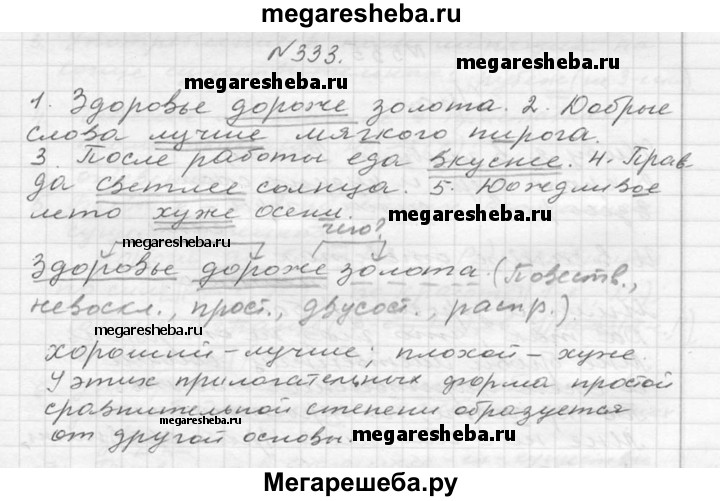 megaresheba.ru
№333.
megaresheba.ru
1. Здоровье дороже золота. 2. Добрые
слова лучше мягкого пирога.
3. После работы еда вкуснее. 4. Прав-
да светлее солнца. 5. Дождливое
megaresheba.ru
лето хуже осени.
чего?
megaresheba.ru
Здоровье дороже золота. (Повеств.,
невоскл., прост., двусост., распр.).
megaresheba.ru
хороший – лучше; плохой – хуже.
У этих прилагательных форма простой
сравнительной степени образуется
megaresheba.ru
от другой основы.
megaresheba.ru
Мегарешеба.ру